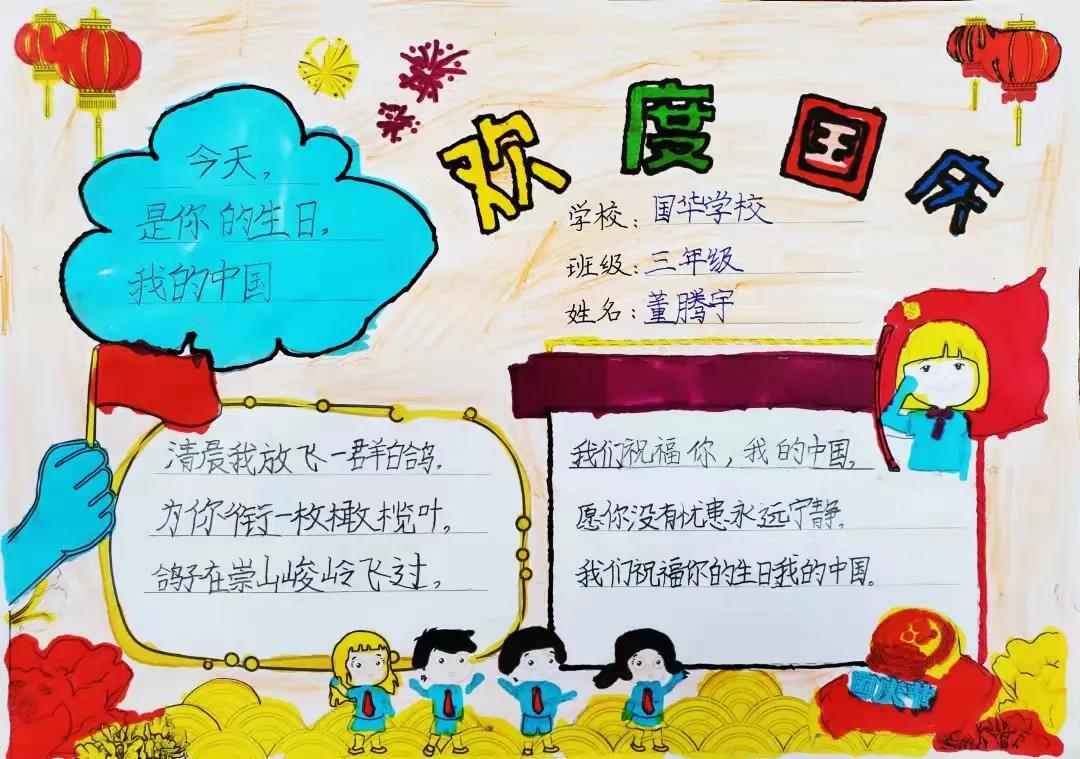 欢度国庆
学校：国华学校
班级：三年级
姓名：董腾宇
今天，
是你的生日，
我的中国
清晨我放飞一群白鸽，
为你衔一枚橄榄叶，
鸽子在崇山峻岭飞过，
我们祝福你，我的中国，
愿你没有忧患永远宁静，
我们祝福你的生日我的中国。
国庆节